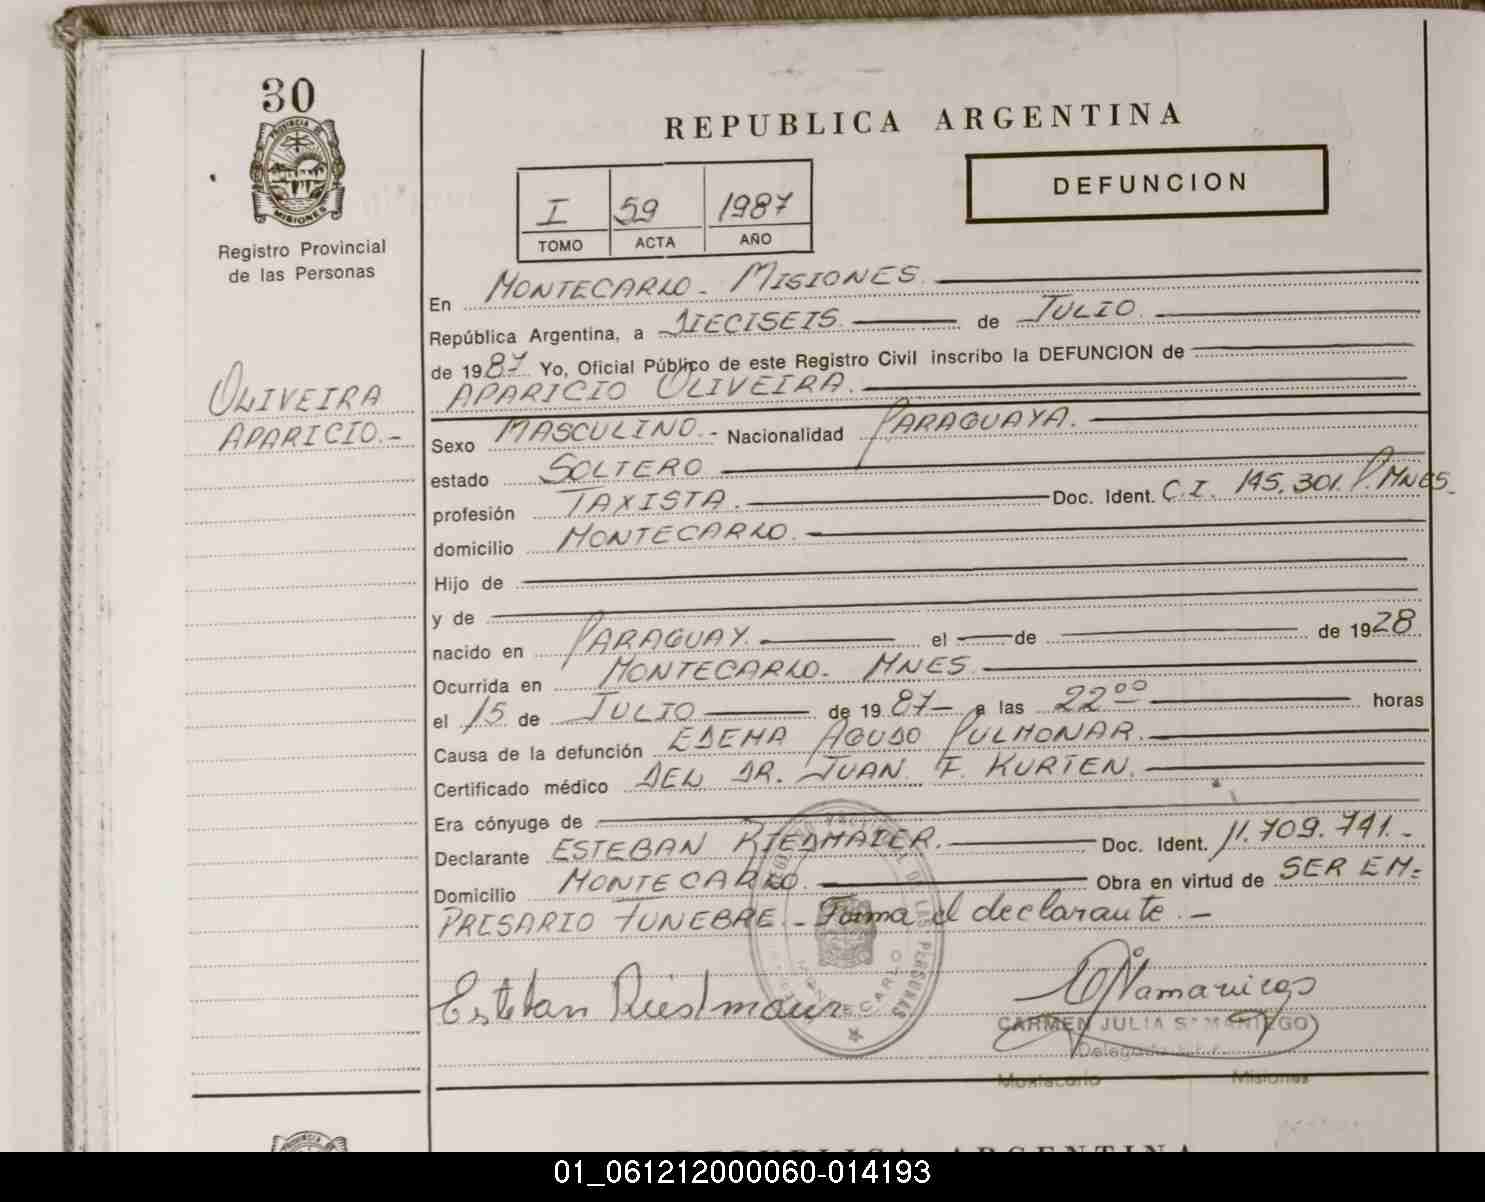 30
PROVINCIA DE
MISIONES
Registro Provincial
de las Personas
OLIVEIRA
APARICIO.-
REPUBLICA ARGENTINA
DEFUNCION
I 59 1987
TOMO ACTA AÑO
En MONTECARLO - MISIONES.
República Argentina, a DIECISEIS. de JULIO.
de 1987 Yo, Oficial Público de este Registro Civil inscribo la DEFUNCION de
APARICIO OLIVEIRA.
Sexo MASCULINO.- Nacionalidad PARAGUAYA.
estado SOLTERO
profesión TAXISTA. Doc. Ident. C.I. 145.301. P. MNES.
domicilio MONTECARLO.
Hijo de
y de
nacido en PARAGUAY. el de de 1928
Ocurrida en MONTECARLO. MNES.
el 15 de JULIO de 1987- a las 22⁰⁰ horas
Causa de la defunción EDEMA AGUDO PULMONAR.
Certificado médico DEL DR. JUAN F. KURTEN.
Era cónyuge de
Declarante ESTEBAN RIEDMAIER. Doc. Ident. 11.709.741.-
Domicilio MONTECARLO. Obra en virtud de SER EM-
PRESARIO FUNEBRE.- Firma el declarante.-
DE LAS PERSONAS
MONTECARLO
Esteban Riedmaier
CARMEN JULIA SAMANIEGO
Montecarlo Misiones
REPUBLICA ARGENTINA
01_061212000060-014193